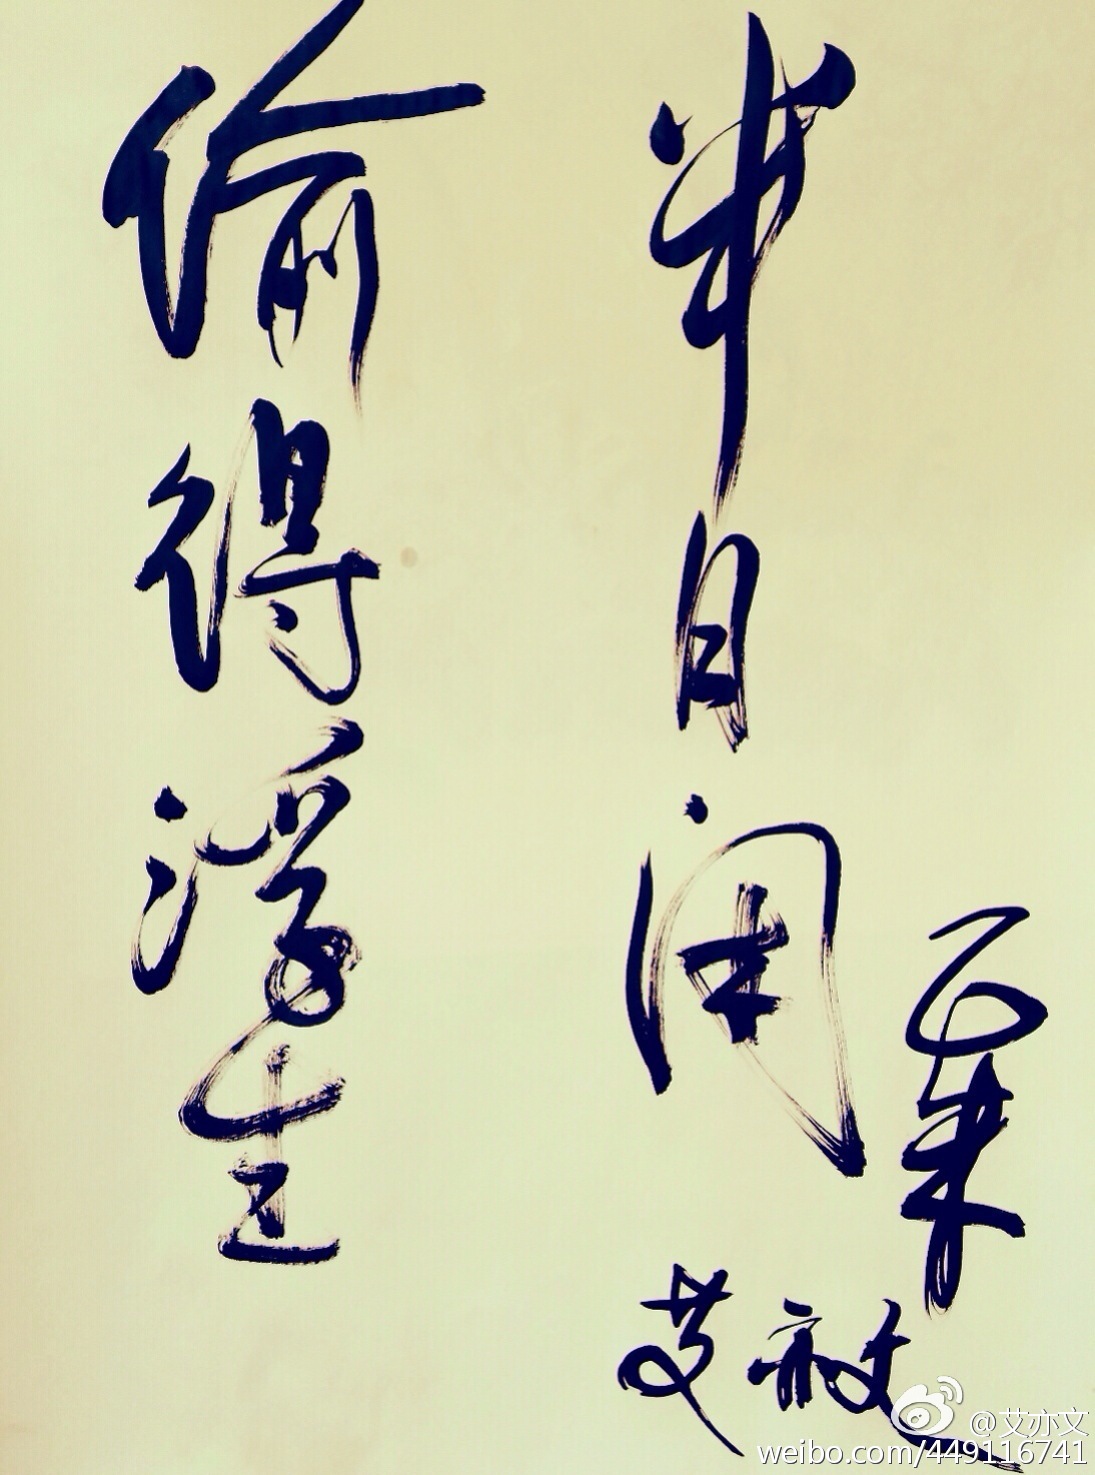 偷得浮生
半日闲
艾亦文
@艾亦文
weibo.com/449116741